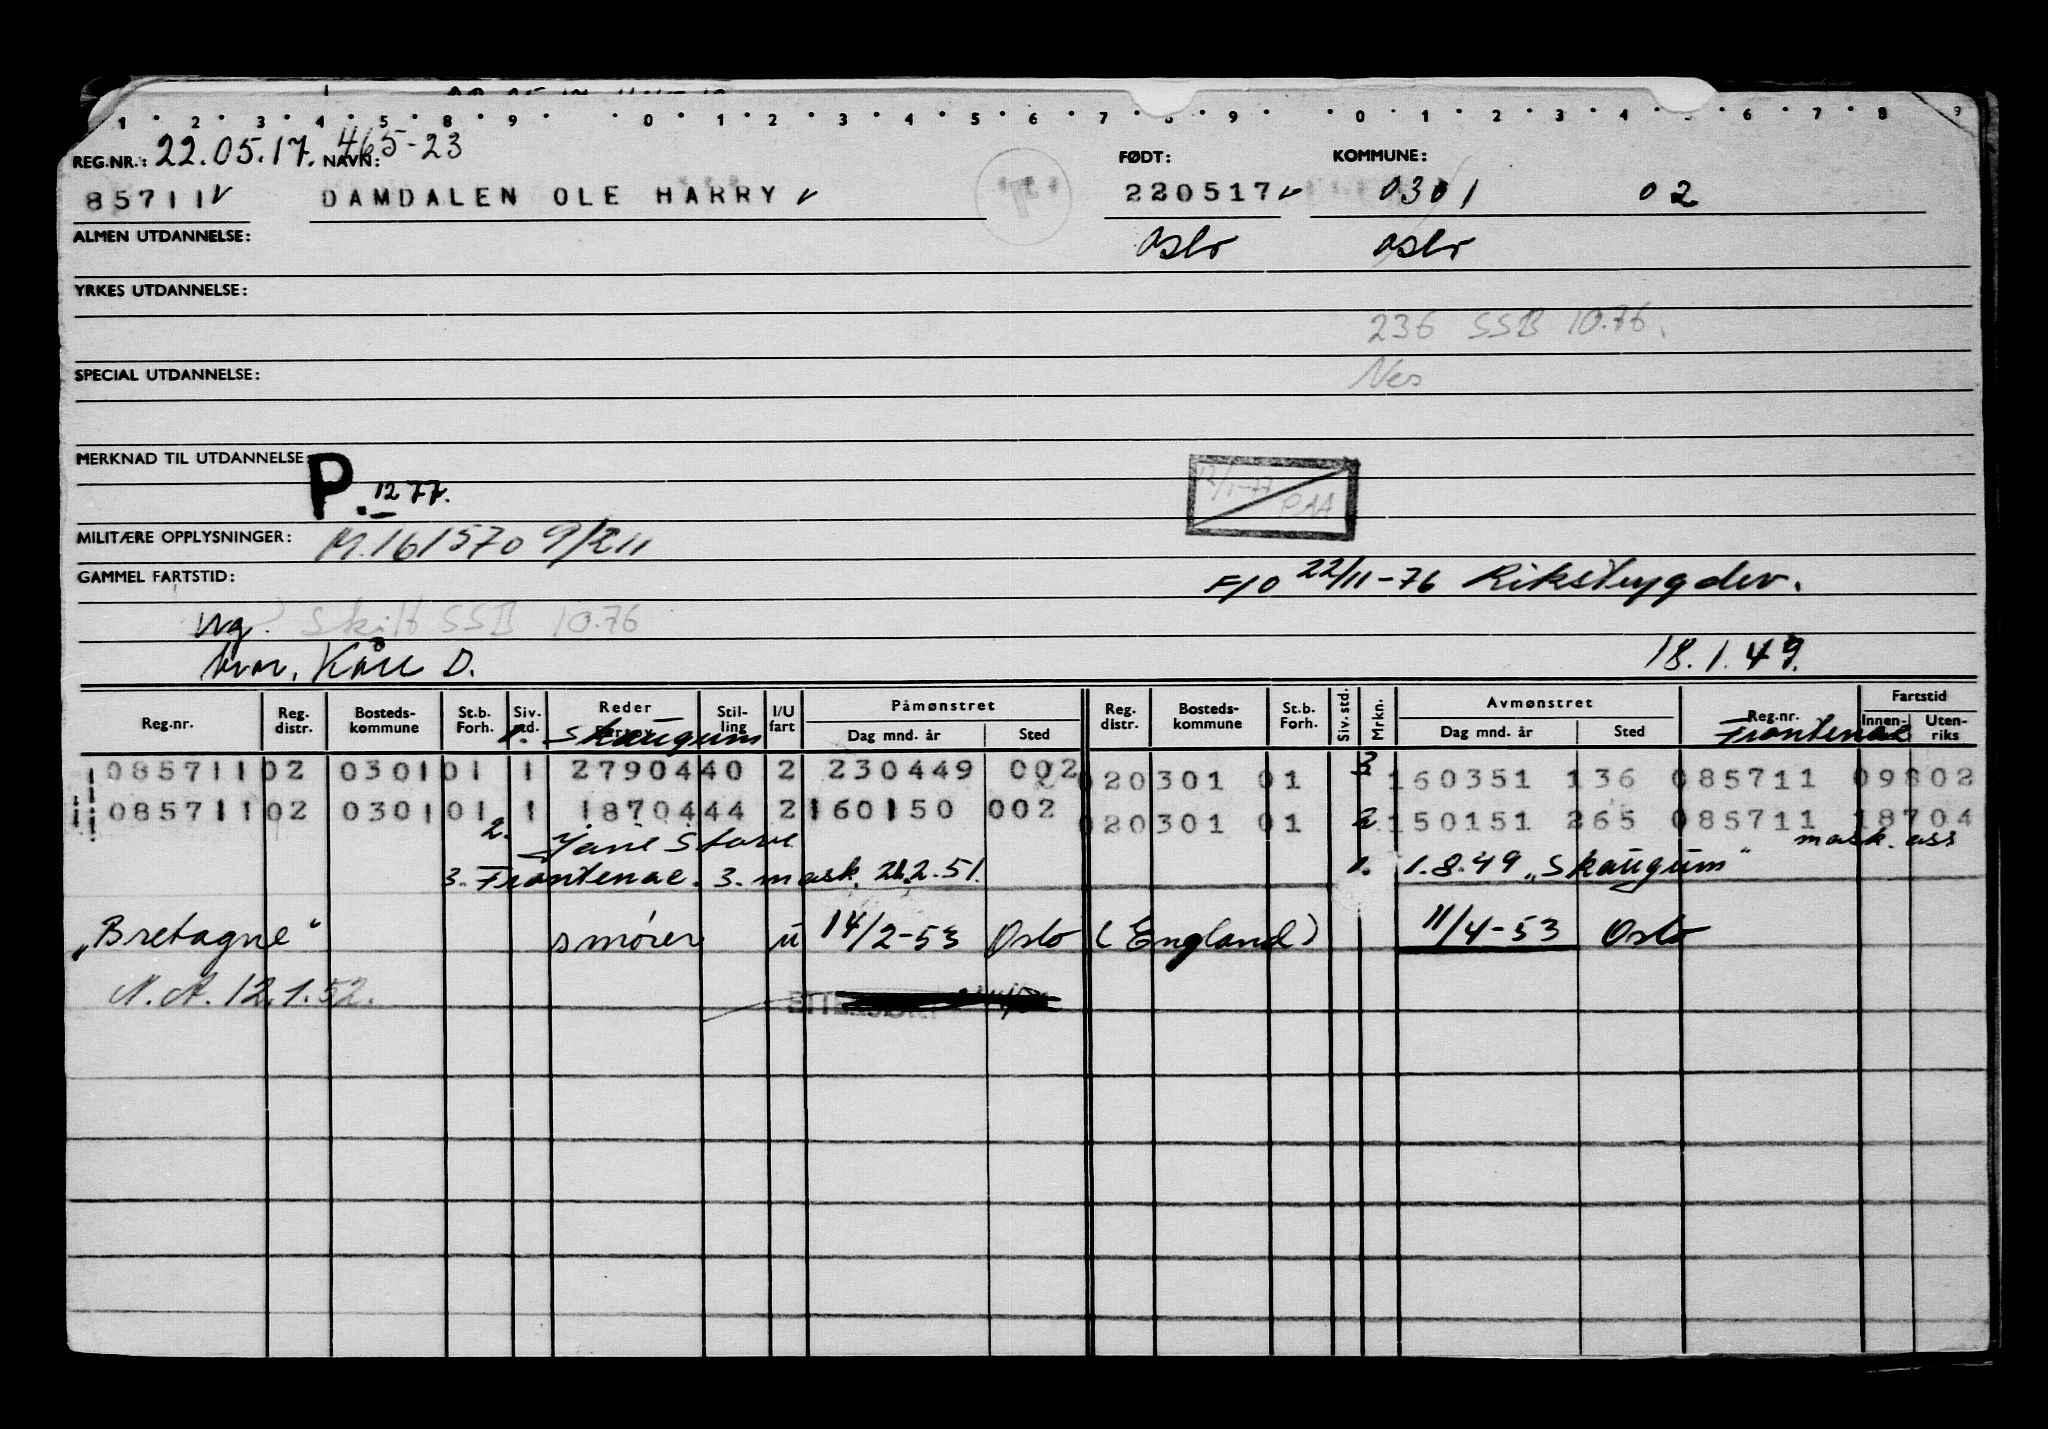 1 2 3 4 5 8 9 0 1 2 3 4 5 6 7 8 9 0 1 2 3 4 5 6 7 8 9
REG.NR.: 22.05.17. 465-23 NAVN: FØDT: KOMMUNE:
85711 v DAMDALEN OLE HARRY v 220517 v 0301 02
ALMEN UTDANNELSE: Oslo Oslo
YRKES UTDANNELSE:
236 SSB 10.76.
SPECIAL UTDANNELSE: Nes
MERKNAD TIL UTDANNELSE:
P. 12 77. 12/1-77
MILITÆRE OPPLYSNINGER: M.161570 9/211
GAMMEL FARTSTID: F/O 22/11-76 Rikstrygdev.
ug. Skilt SSB 10.76
bror, Kåre D. 18.1.49.
Reg.nr. Reg. distr. Bosteds- kommune St.b. Forh. Siv. std. Reder Stil- ling I/U fart Påmønstret Dag mnd. år Sted Reg. distr. Bosteds- kommune St.b. Forh. Siv. std. Mrkn. Avmønstret Dag mnd. år Sted Reg.nr. Fartstid Innen- Uten- riks
1. Skaugum Frontenac
085711 02 0301 01 1 27904 40 2 230449 002 020301 01 3 160351 136 085711 09802
085711 02 0301 01 1 18704 44 2 160150 002 020301 01 2 150151 265 085711 18704
2. Jane Stove mask. ass
3. Frontenac. 3. mask. 21.2.51. 1. 1.8.49 „Skaugum"
„Bretagne" smører u 14/2-53 Oslo (England) 11/4-53 Oslo
N.A. 12.1.52.